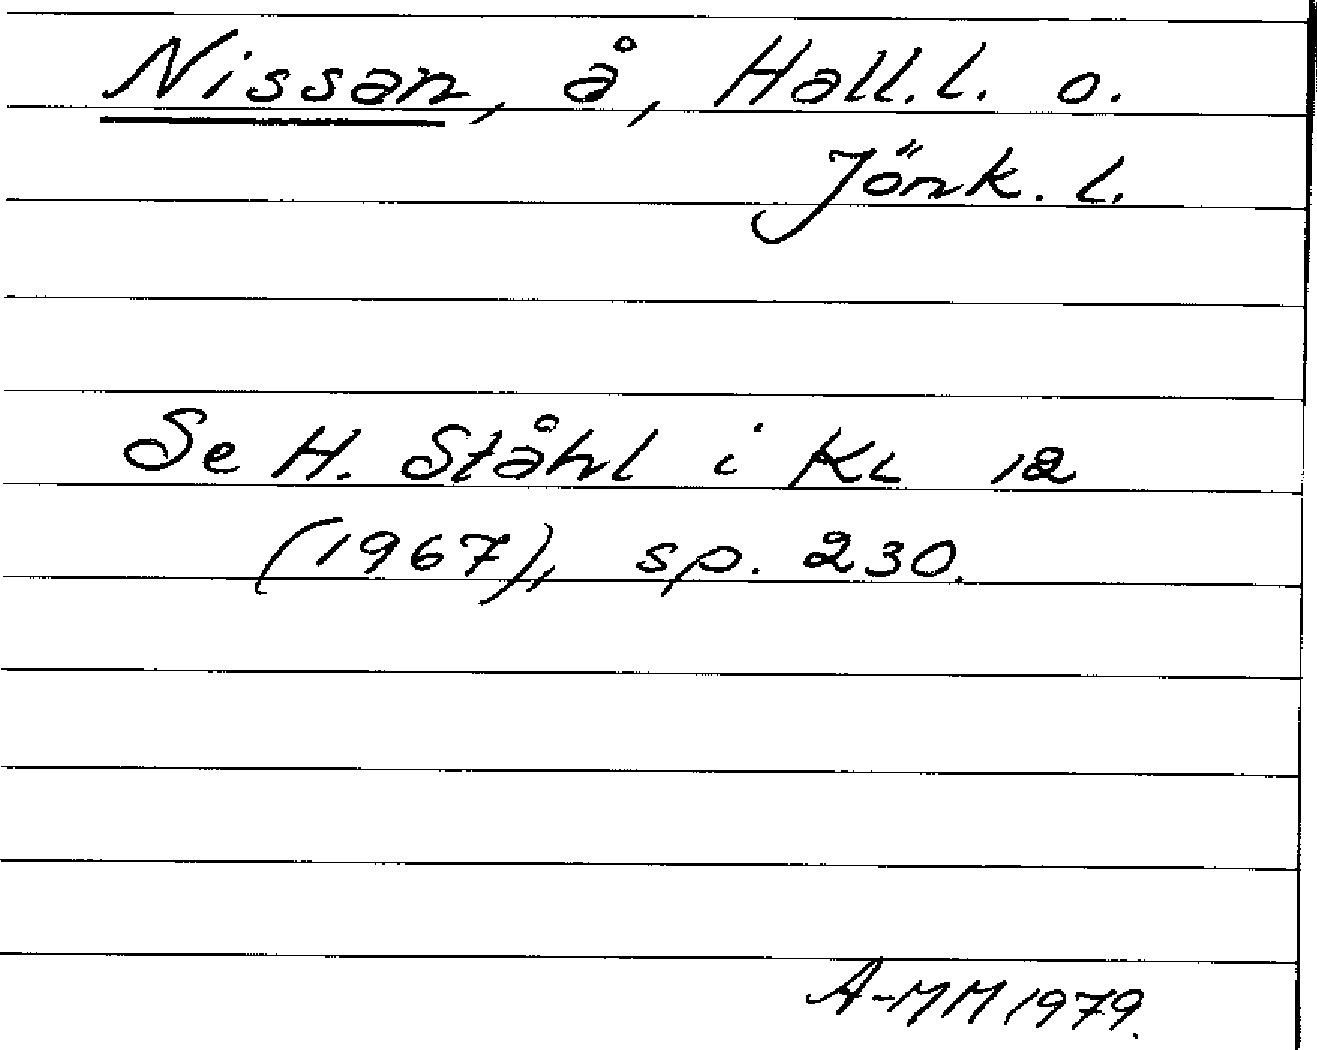 Nissan, å, Hall.l. o.
Jönk. l.
Se H. Ståhl i KL 12
(1967), sp. 230.
A-MM 1979.